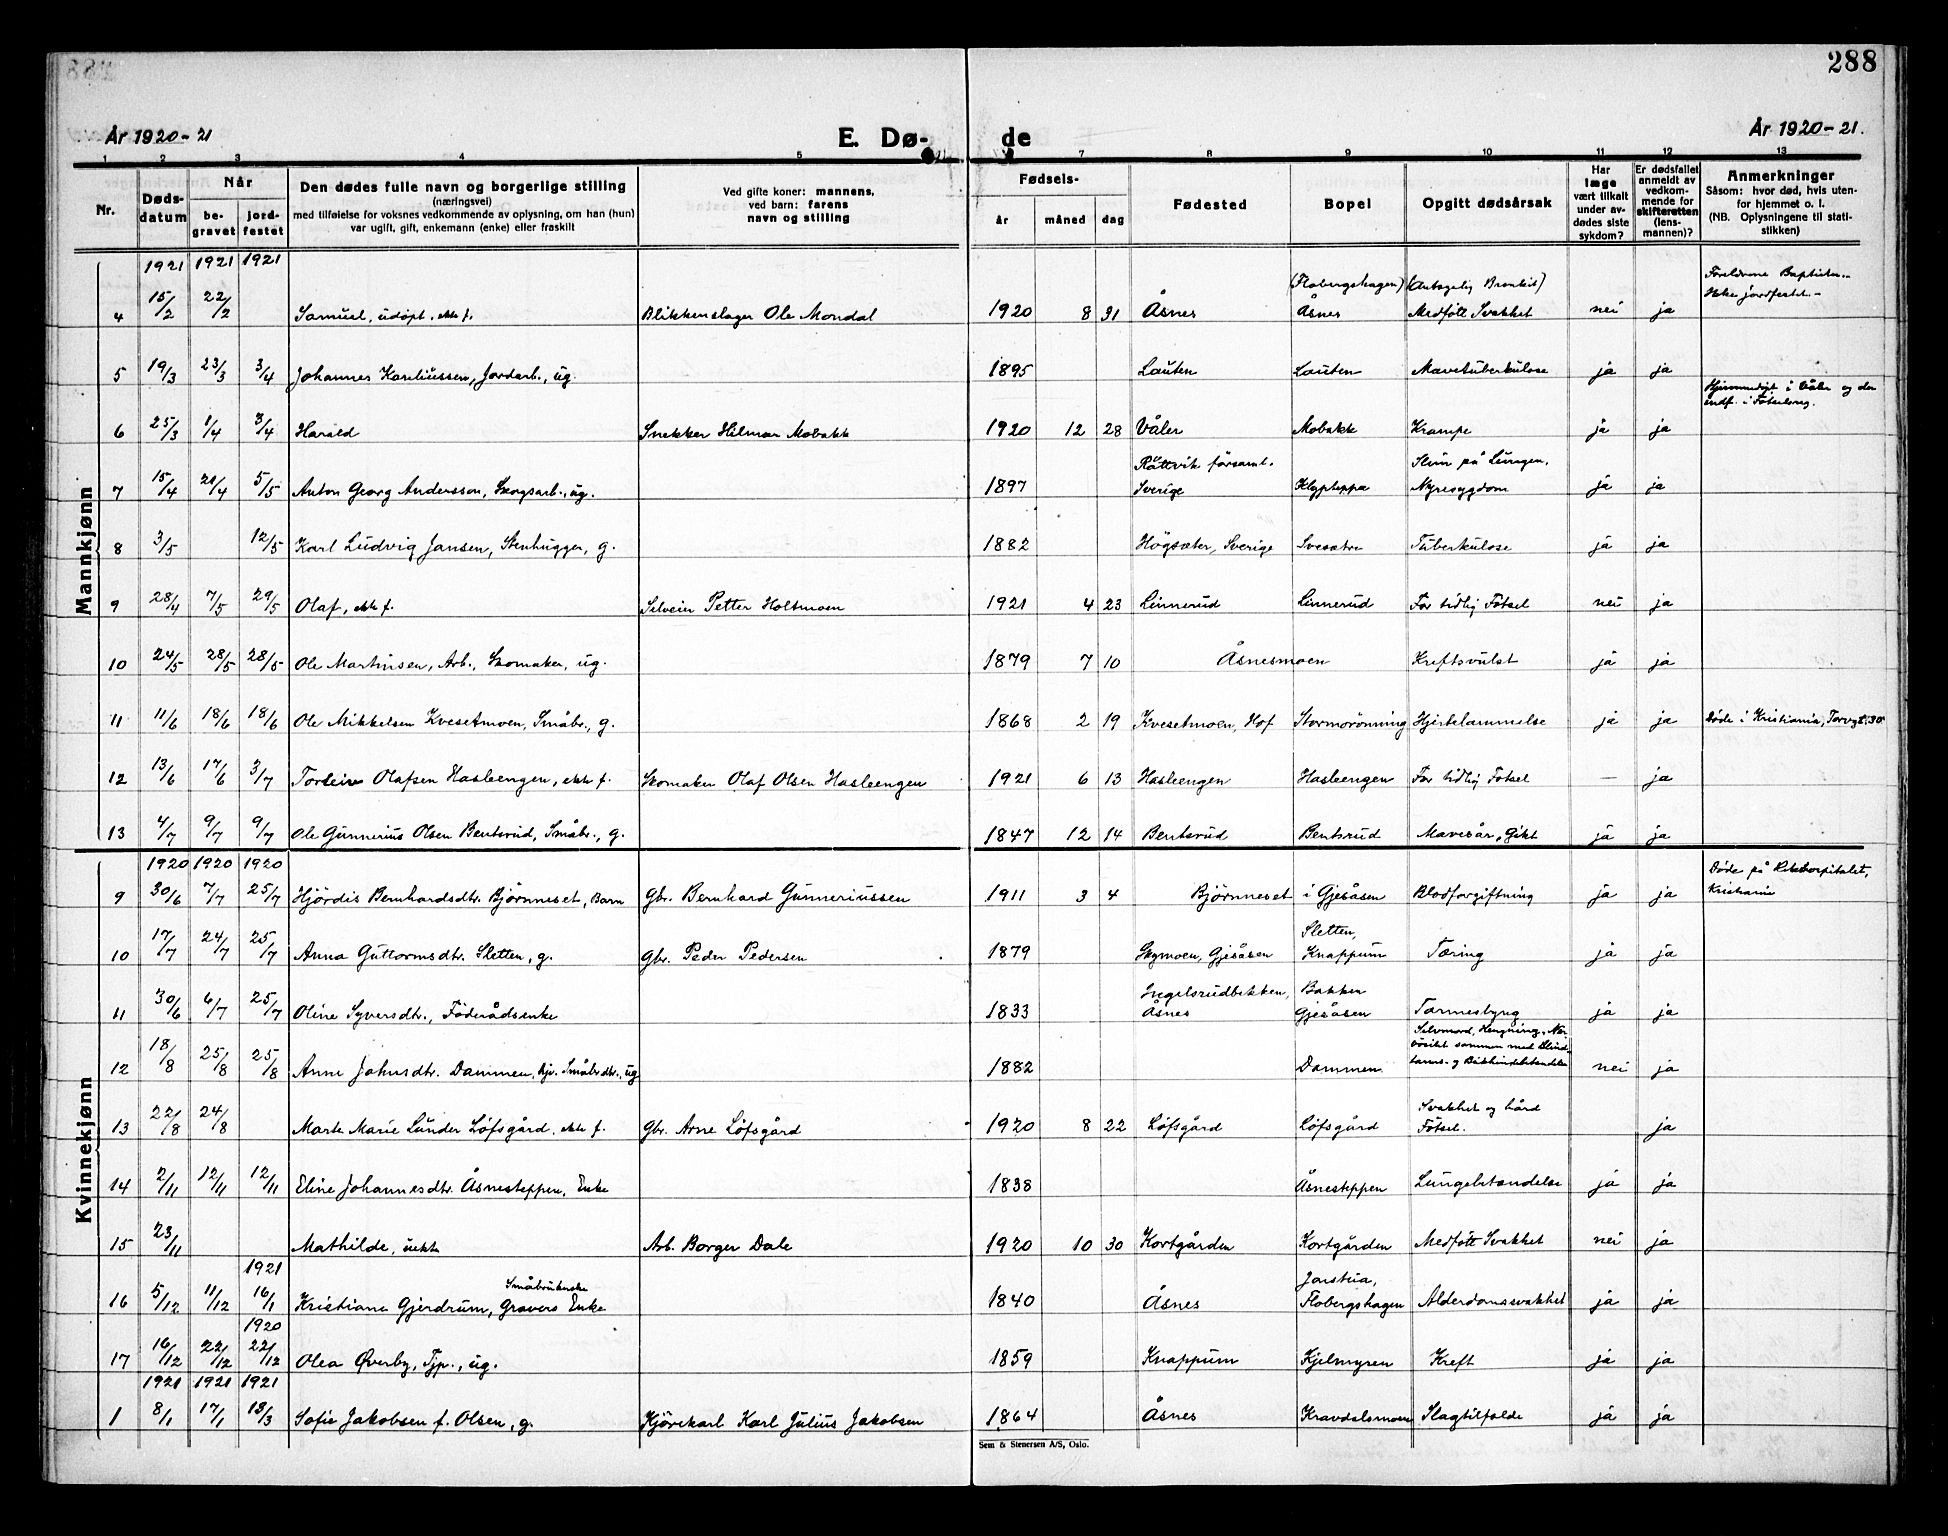 288
År 1920-21
E. Dø-
de
År 1920-21.
1 2 3 4 5 7 8 9 10 11 12 13
Nr.
Døds-
datum
Når
be-
gravet
jord-
festet
Den dødes fulle navn og borgerlige stilling
(næringsvei)
med tilføielse for voksnes vedkommende av oplysning, om han (hun)
var ugift, gift, enkemann (enke) eller fraskilt
Ved gifte koner: mannens,
ved barn: farens
navn og stilling
Fødsels-
år måned dag
Fødested
Bopel
Opgitt dødsårsak
Har
læge
vært tilkalt
under av-
dødes siste
sykdom?
Er dødsfallet
anmeldt av
vedkom-
mende for
skifteretten
(lens-
mannen)?
Anmerkninger
Såsom: hvor død, hvis uten-
for hjemmet o. l.
(NB. Oplysningene til stati-
stikken)
Mannkjønn
1921 1921 1921
(Flobergshagen) (Antagelig Bronkit) Foreldrene Baptister.-
Ikke jordfestet.-
4 15/2 22/2 Samuel, udøpt, ekte f. Blikkenslager Ole Mondal 1920 8 31 Åsnes Åsnes Medføtt Svakhet nei ja
5 19/3 23/3 3/4 Johannes Kareliussen, Jordarb., ug. 1895 Løuten Løuten Mavetuberkulose ja ja
Hjemmedøpt i Våler og der
indf. i Fødselsreg.
6 25/3 1/4 3/4 Harald Snekker Hilmar Mobakk 1920 12 28 Våler Mobakk Krampe ja ja
Rättvik församl. Slim på Lungen,
7 15/4 21/4 5/5 Anton Georg Andersson, Skogsarb., ug. 1897 Sverige Klypteppa Nyresygdom ja ja
8 3/5 12/5 Karl Ludvig Jansen, Stenhugger, g. 1882 Högsäter, Sverige Svesætre Tuberkulose ja ja
9 28/4 7/5 29/5 Olaf, ekte f. Selveier Petter Holtmoen 1921 4 23 Linnerud Linnerud For tidlig Fødsel nei ja
10 24/5 28/5 28/5 Ole Martinsen, Arb., Skomaker, ug. 1879 7 10 Åsnesmoen Kreftsvulst ja ja
11 11/6 18/6 18/6 Ole Mikkelsen Kvesetmoen, Småbr., g. 1868 2 19 Kvesetmoen, Hof Stormorönning Hjertelammelse ja ja Døde i Kristiania, Torvgt. 30
12 13/6 17/6 3/7 Torleiv Olafsen Hasleengen, ekte f. Skomaker Olaf Olsen Hasleengen 1921 6 13 Hasleengen Hasleengen For tidlig Fødsel — ja
13 4/7 9/7 9/7 Ole Gunnerius Olsen Bentsrud, Småbr., g. 1847 12 14 Bentsrud Bentsrud Mavesår, Gikt ja ja
Kvinnekjønn
1920 1920 1920
Døde på Rikshospitalet,
Kristiania
9 30/6 7/7 25/7 Hjördis Bernhardsdtr. Björnneset, Barn Gbr. Bernhard Gunneriussen 1911 3 4 Björnneset i Gjesåsen Blodforgiftning ja ja
Sletten,
10 17/7 24/7 25/7 Anna Guttormsdtr. Sletten, g. Gbr. Peder Pedersen 1879 Skymoen, Gjesåsen Knappum Tæring ja ja
Ingelsrudbekken, Bakken
11 30/6 6/7 25/7 Oline Syversdtr., Föderådsenke 1833 Åsnes Gjesåsen Tarmeslyng ja ja
Selvmord, Hengning, Ner-
vösitet sammen med Blind-
tarms- og Bukhindebetændelse
12 18/8 25/8 25/8 Anne Johnsdtr. Dammen, Hjv. Småbrdtr., ug 1882 Dammen nei ja
Svakhet og hård
13 22/8 24/8 Marte Marie Lunder Löfsgård, ekte f. Gbr. Arne Löfsgård 1920 8 22 Löfsgård Löfsgård Fötsel. ja
14 2/11 12/11 12/11 Eline Johannesdtr. Åsnesteppen, Enke 1838 Åsnesteppen Lungebetændelse ja ja
15 23/11 Mathilde, uekte Arb. Borger Dale 1920 10 30 Kortgården Kortgården Medføtt Svakhet nei ja
1921
Småbrukerske Flobergshagen
16 5/12 11/12 16/1 Kristiane Gjerdrum, Gravers Enke 1840 Åsnes Alderdomssvakhet ja ja
1920
17 16/12 22/12 22/12 Olea Øverby, Tjp., ug. 1859 Knappum Kjelmyren Kreft ja ja
1921 1921 1921
1 8/1 17/1 18/3 Sofie Jakobsen f. Olsen, g. Kjörekarl Karl Julius Jakobsen 1864 Åsnes Kravdalsmoen Slagtilfelde ja ja
Sem & Stenersen A/S, Oslo.